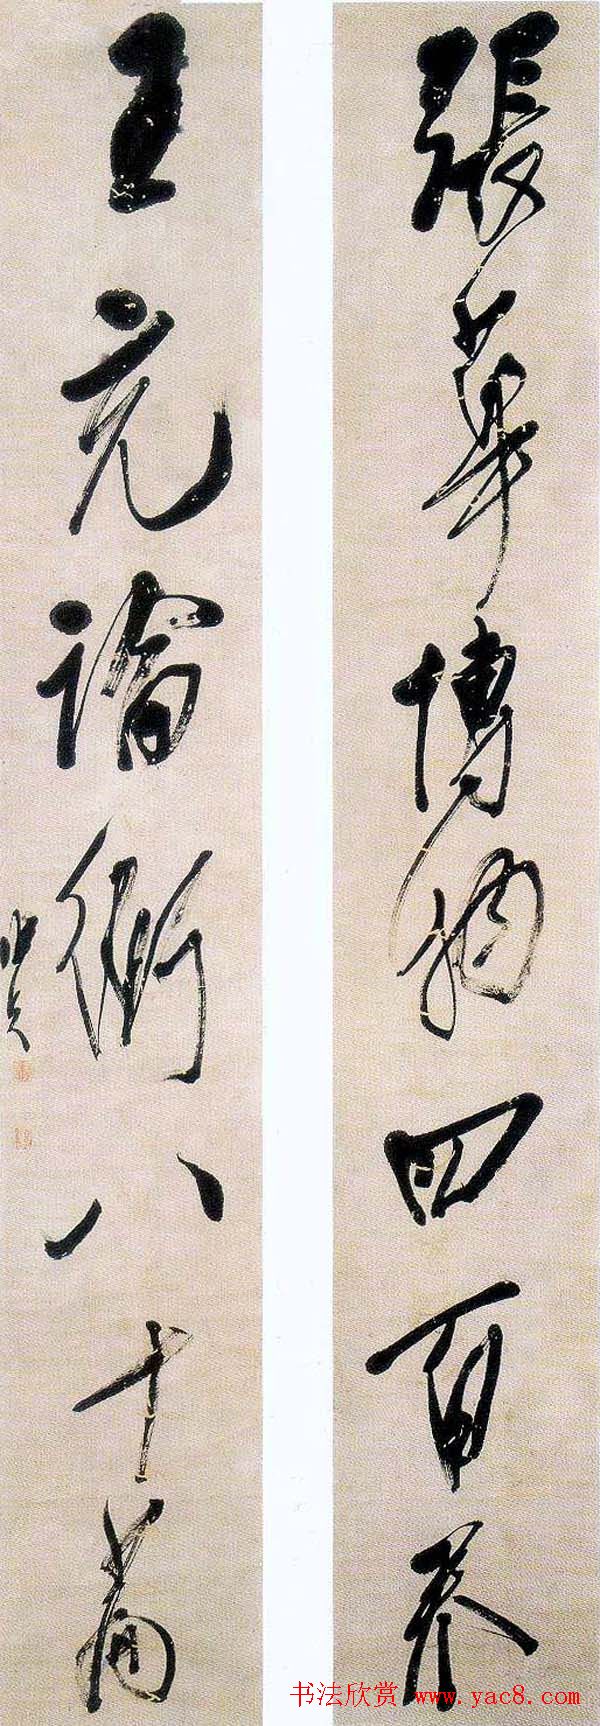 張華博物四百卷
王充論衡八十篇
书法欣赏 www.yac8.com